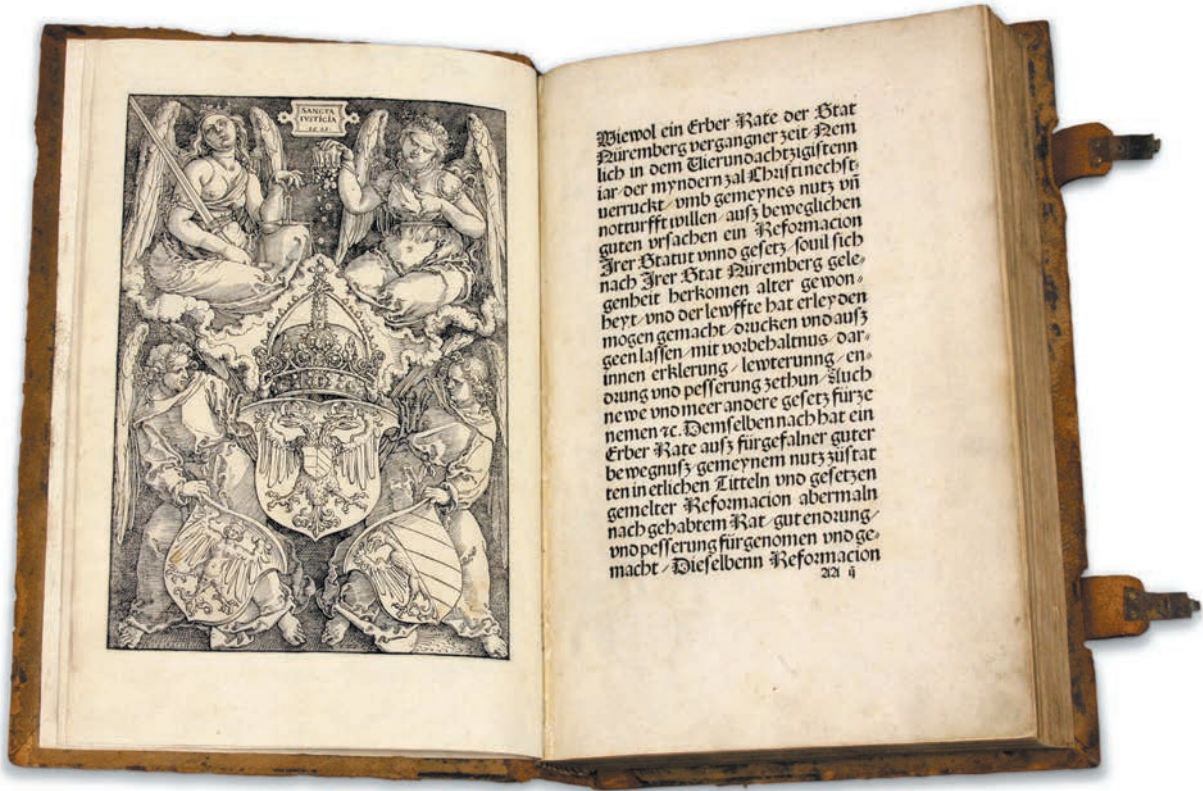 SANCTA
IVSTICIA
1521
Wiewol ein Erber Rate der Stat
Nüremberg vergangner zeit Nem
lich in dem Vierundachtzigistenn
iar der myndern zal Christi nechst
verruckt / vmb gemeynes nutz vñ
notturfft willen / ausz beweglichen
guten vrsachen ein Reformacion
Irer Statut vnnd gesetz / souil sich
nach Irer Stat Nüremberg gele⸗
genheit herkomen alter gewon⸗
heyt / vnd der lewffte hat erleyden
mogen gemacht / drucken vnd ausz
geen lassen / mit vorbehaltnus / dar⸗
innen erklerung / lewterunng / en⸗
drung vnd pesserung zethun / Auch
newe vnd meer andere gesetz fürze
nemen ⁊c. Demselben nach hat ein
Erber Rate ausz fürgefalner guter
bewegnusz / gemeynem nutz züstat
ten in etlichen Titteln vnd gesetzen
gemelter Reformacion abermaln
nach gehabtem Rat / gut endrung /
vnd pesserung fürgenomen vnd ge⸗
macht / Dieselbenn Reformacion
AA ij